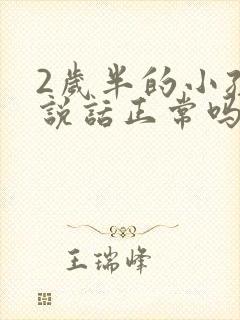 2歲半的小
說話正常嗎
王瑞峰